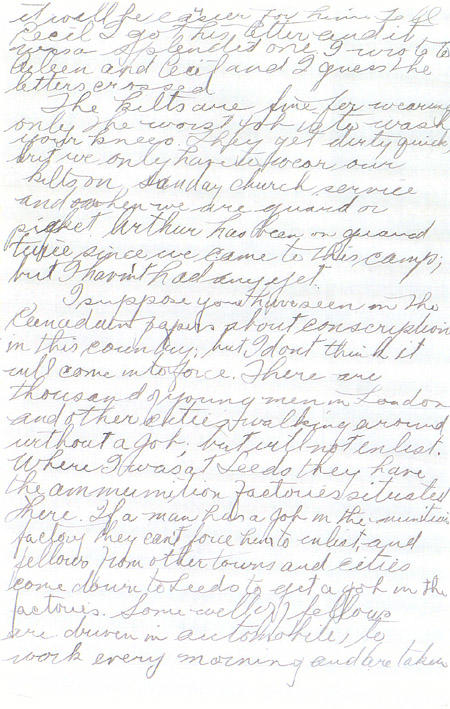 it will be easier for him to fl
Cecil I got his letter and it
was a splendid one. I wrote to
Aileen and Cecil and I guess the
letters crossed
The kilts are fine for wearing
only the worst job is to wash
your knees. They get dirty quick,
but we only have to wear our
kilts on Sunday church service
and when we are guard or
picket Arthur has been on guard
twice since we came to this camp,
but I havint had any yet.
I suppose you have seen in the
Canadian papers about conscription
in this country, but I dont think it
will come into force. There are
thousand of young men in London
and other cities walking around
without a job, but will not enlist.
Where I was at Leeds they have
the ammunition factories situated
there. If a man has a job in the munition
factory they cant force him to enlist, and
fellows from other towns and cities
come down to Leeds to get a job in the
factories. Some well off fellows
are driven in automobiles, to
work every morning and are taken